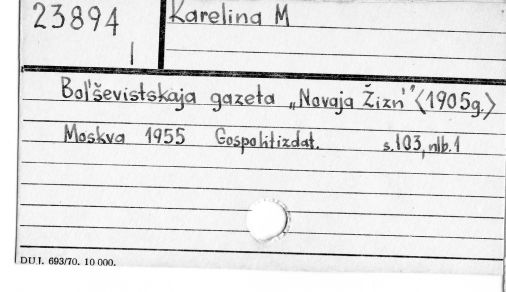 23894
I
Karelina M
Bol'ševistskaja gazeta „Novaja Žizn'" <1905g.>
Moskva 1955 Gospolitizdat. s.103, nlb.1
DUJ. 693/70. 10 000.